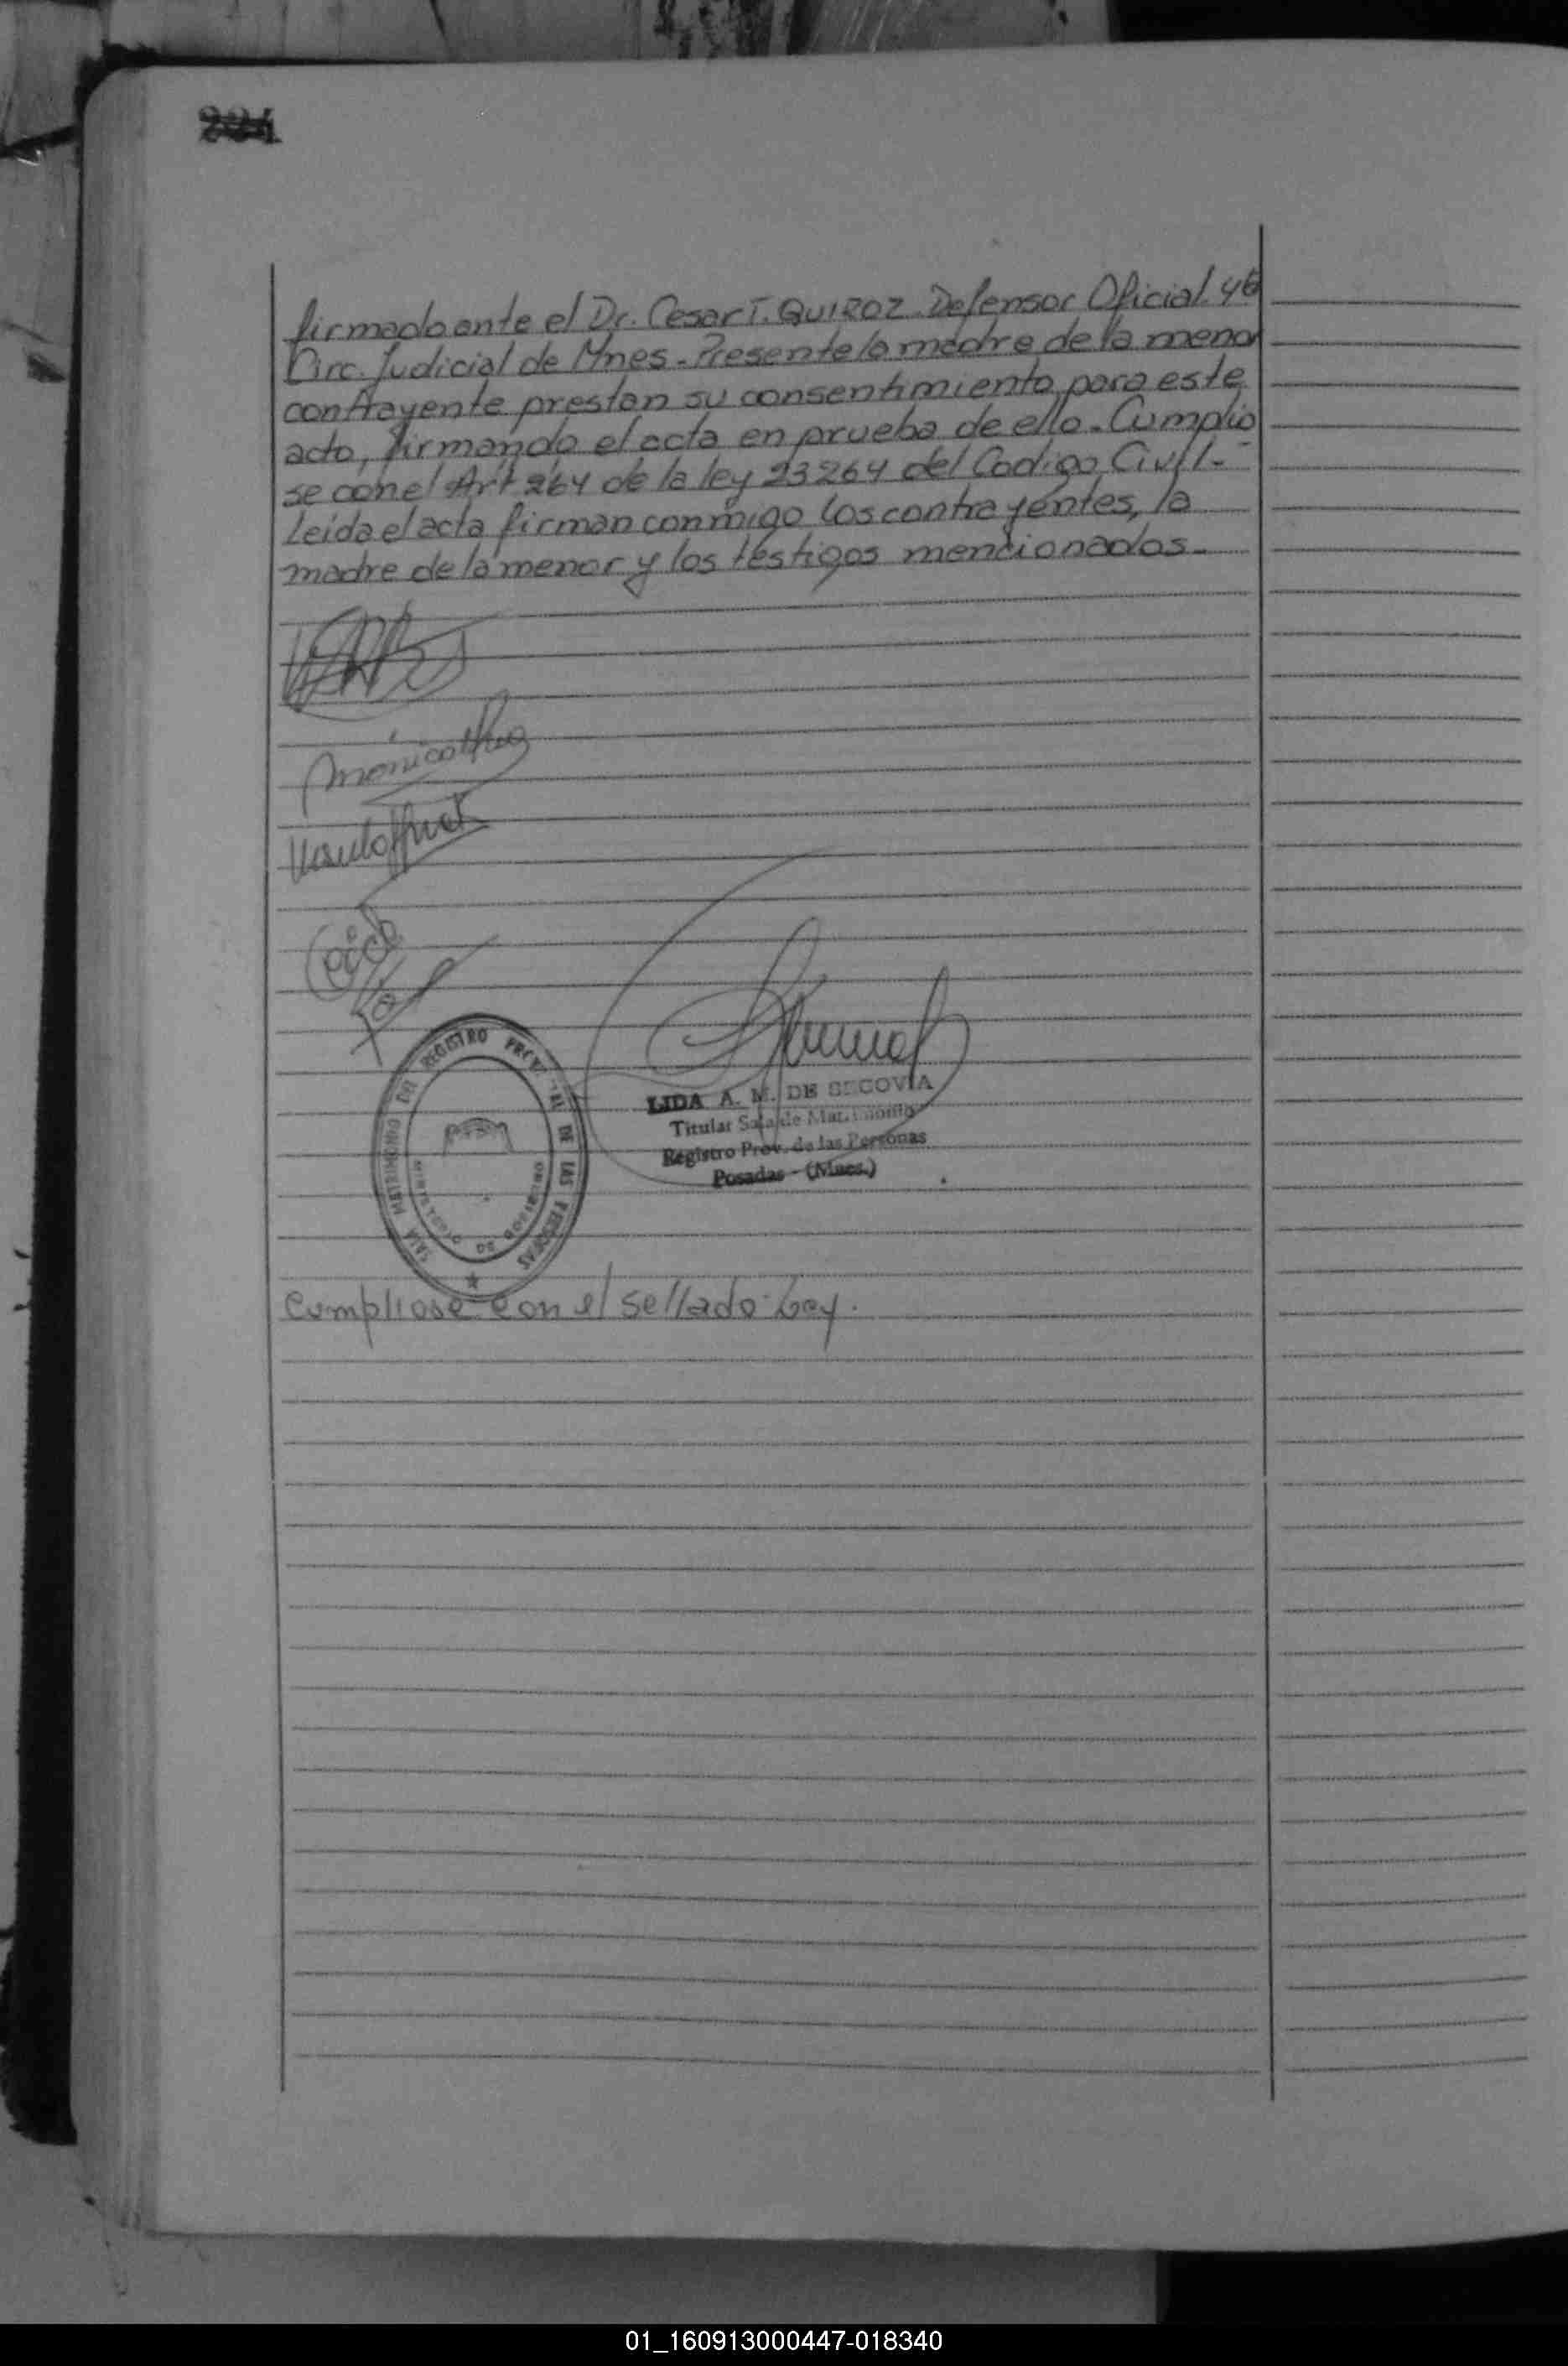 firmado ante el Dr. Cesar I. QUIROZ. Defensor Oficial 4ta
Circ. Judicial de Mnes - Presente la madre de la menor
contrayente prestan su consentimiento para este
acto, firmando el acta en prueba de ello. Cumplio
se con el Art 264 de la ley 23264 del Codigo Civil.-
Leida el acta firman conmigo los contrayentes, la
madre de la menor y los testigos mencionados.-
Mónica
SALA MATRIMONIO DEL REGISTRO PROVINCIAL DE LAS PERSONAS
MINISTERIO DE GOBIERNO
LIDA A. M. DE SEGOVIA
Titular Sala de Matrimonio
Registro Prov. de las Personas
Posadas - (Mnes.)
Cumpliose con el sellado Ley.
01_160913000447-018340